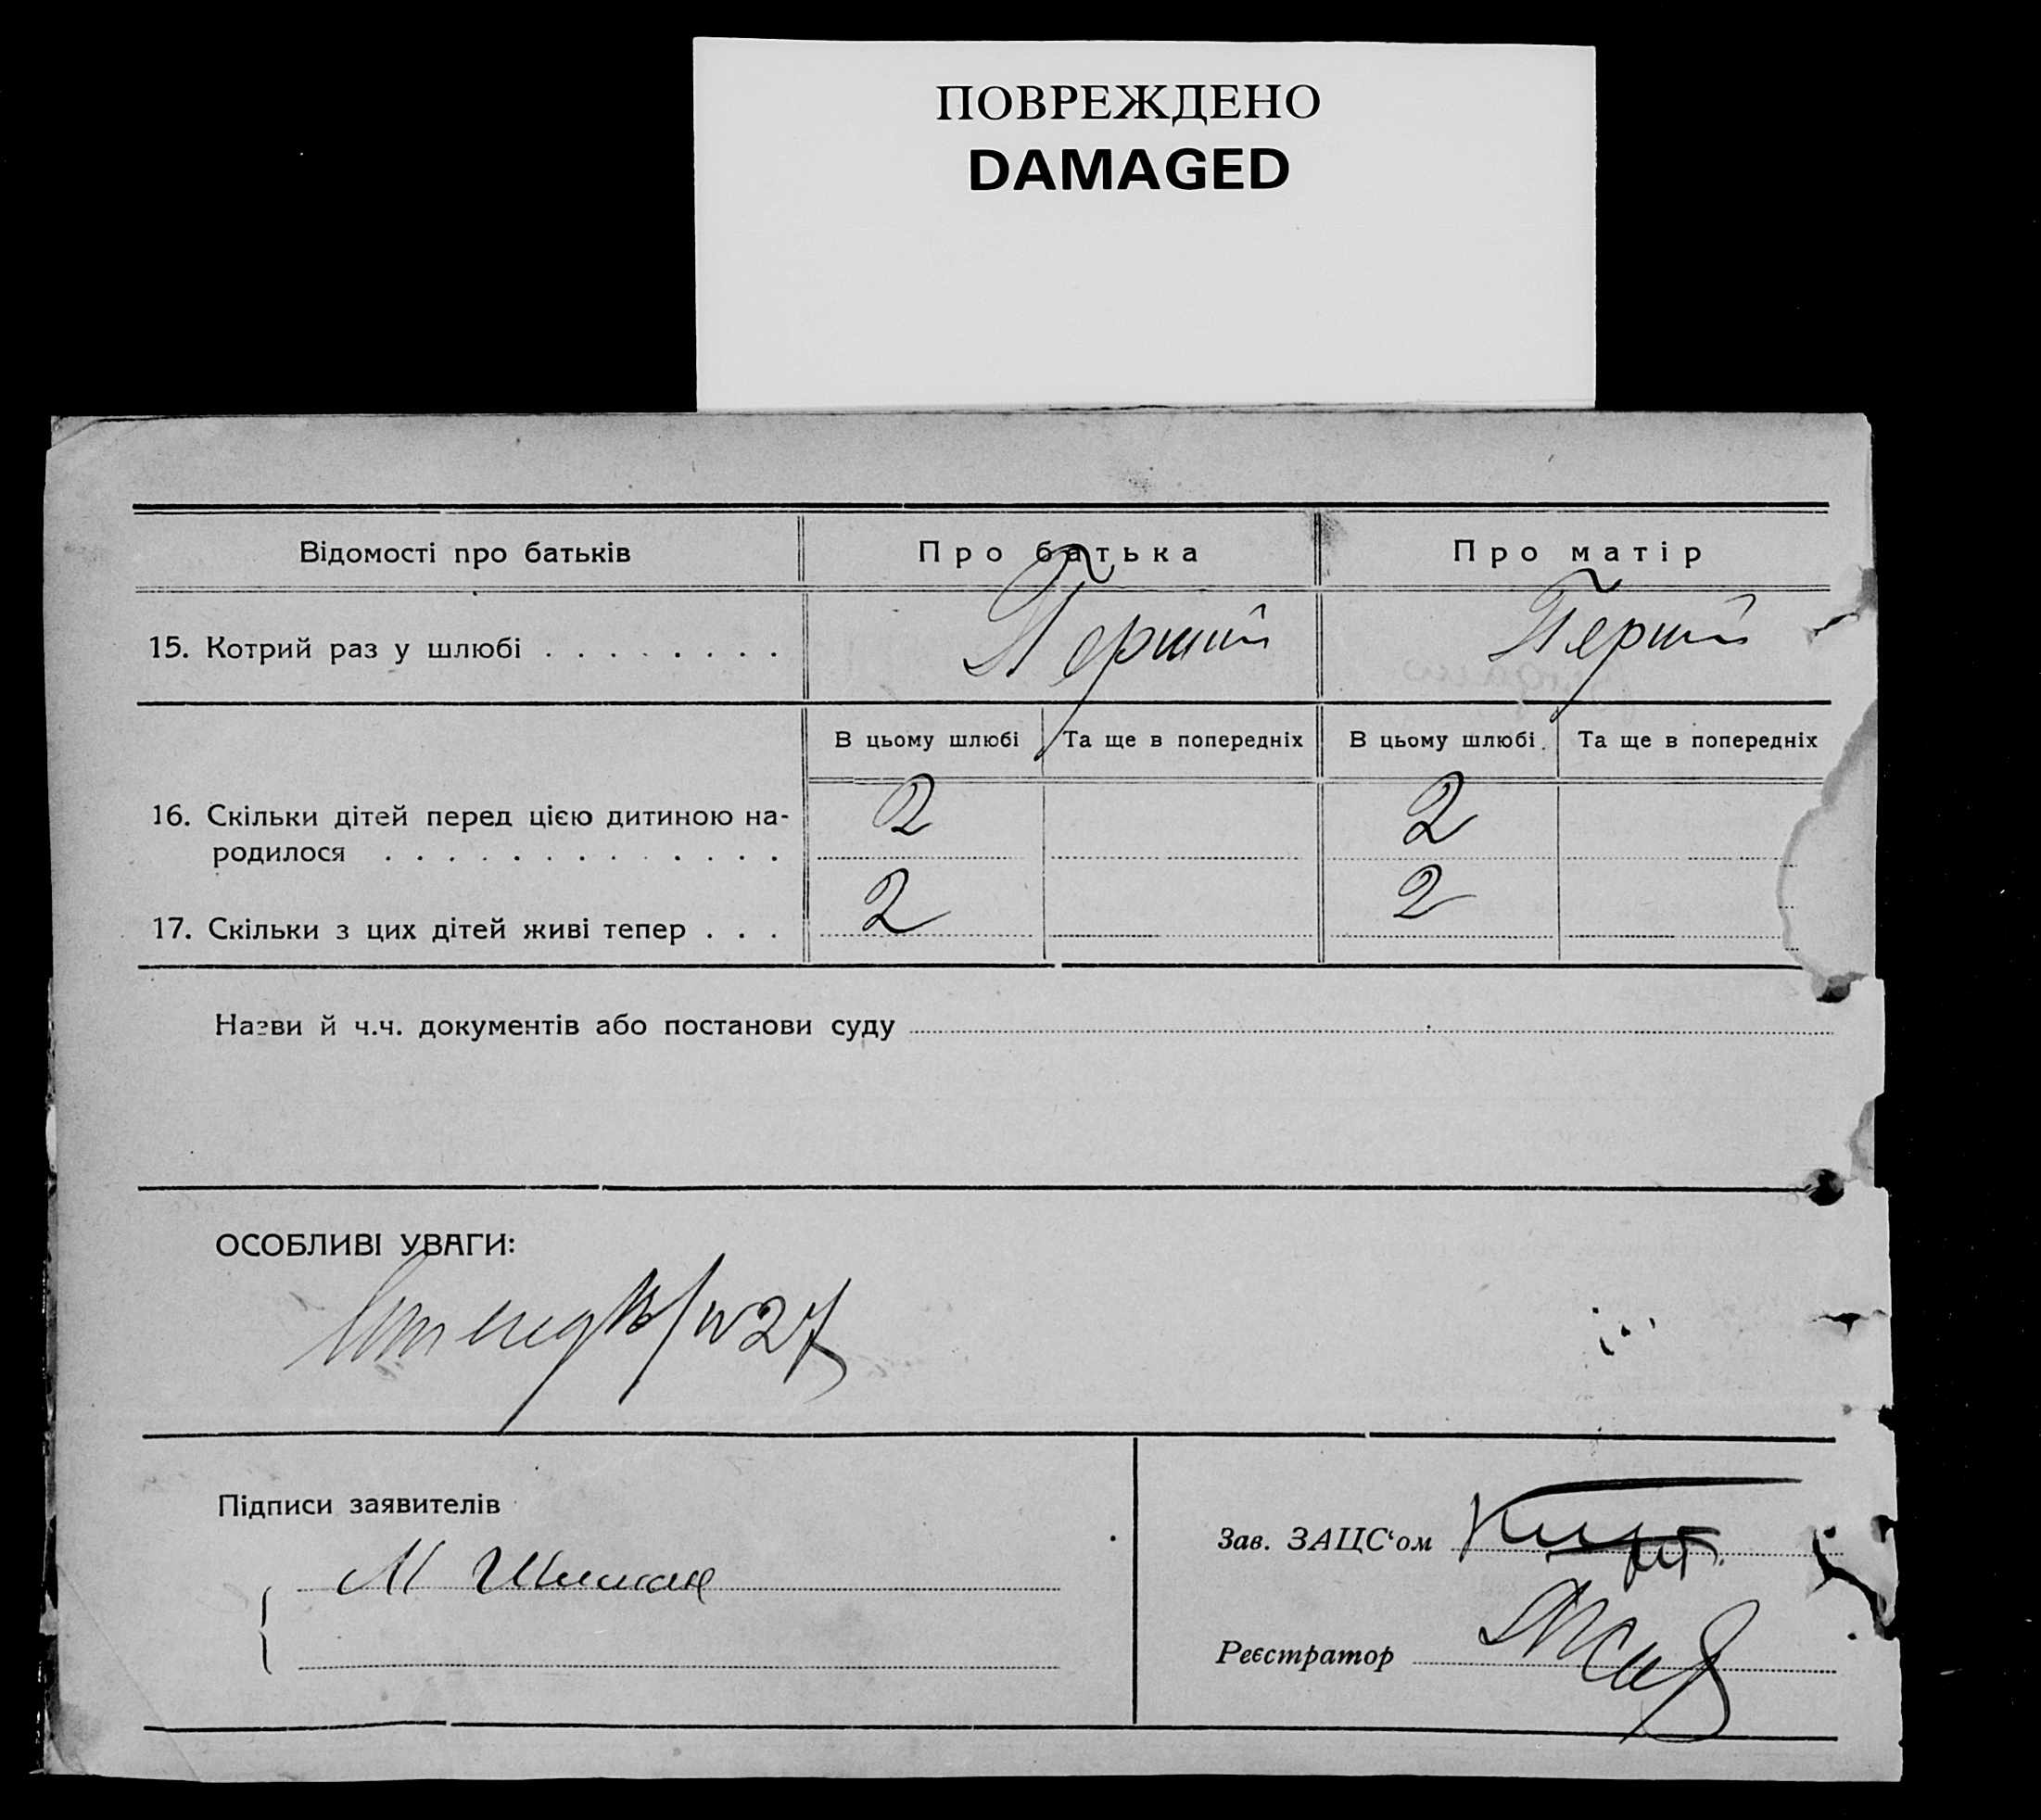 ПОВРЕЖДЕНО
DAMAGED
Відомості про батьків
Про батька
Про матір
15. Котрий раз у шлюбі . . . . . . . .
Перший
Перший
В цьому шлюбі
Та ще в попередніх
В цьому шлюбі
Та ще в попередніх
16. Скільки дітей перед цією дитиною на-
родилося . . . . . . . . . . . . .
2
2
17. Скільки з цих дітей живі тепер . . .
2
2
Назви й ч.ч. документів або постанови суду
ОСОБЛИВІ УВАГИ:
27
Підписи заявителів
М
Зав. ЗАЦС‘ом
Реєстратор